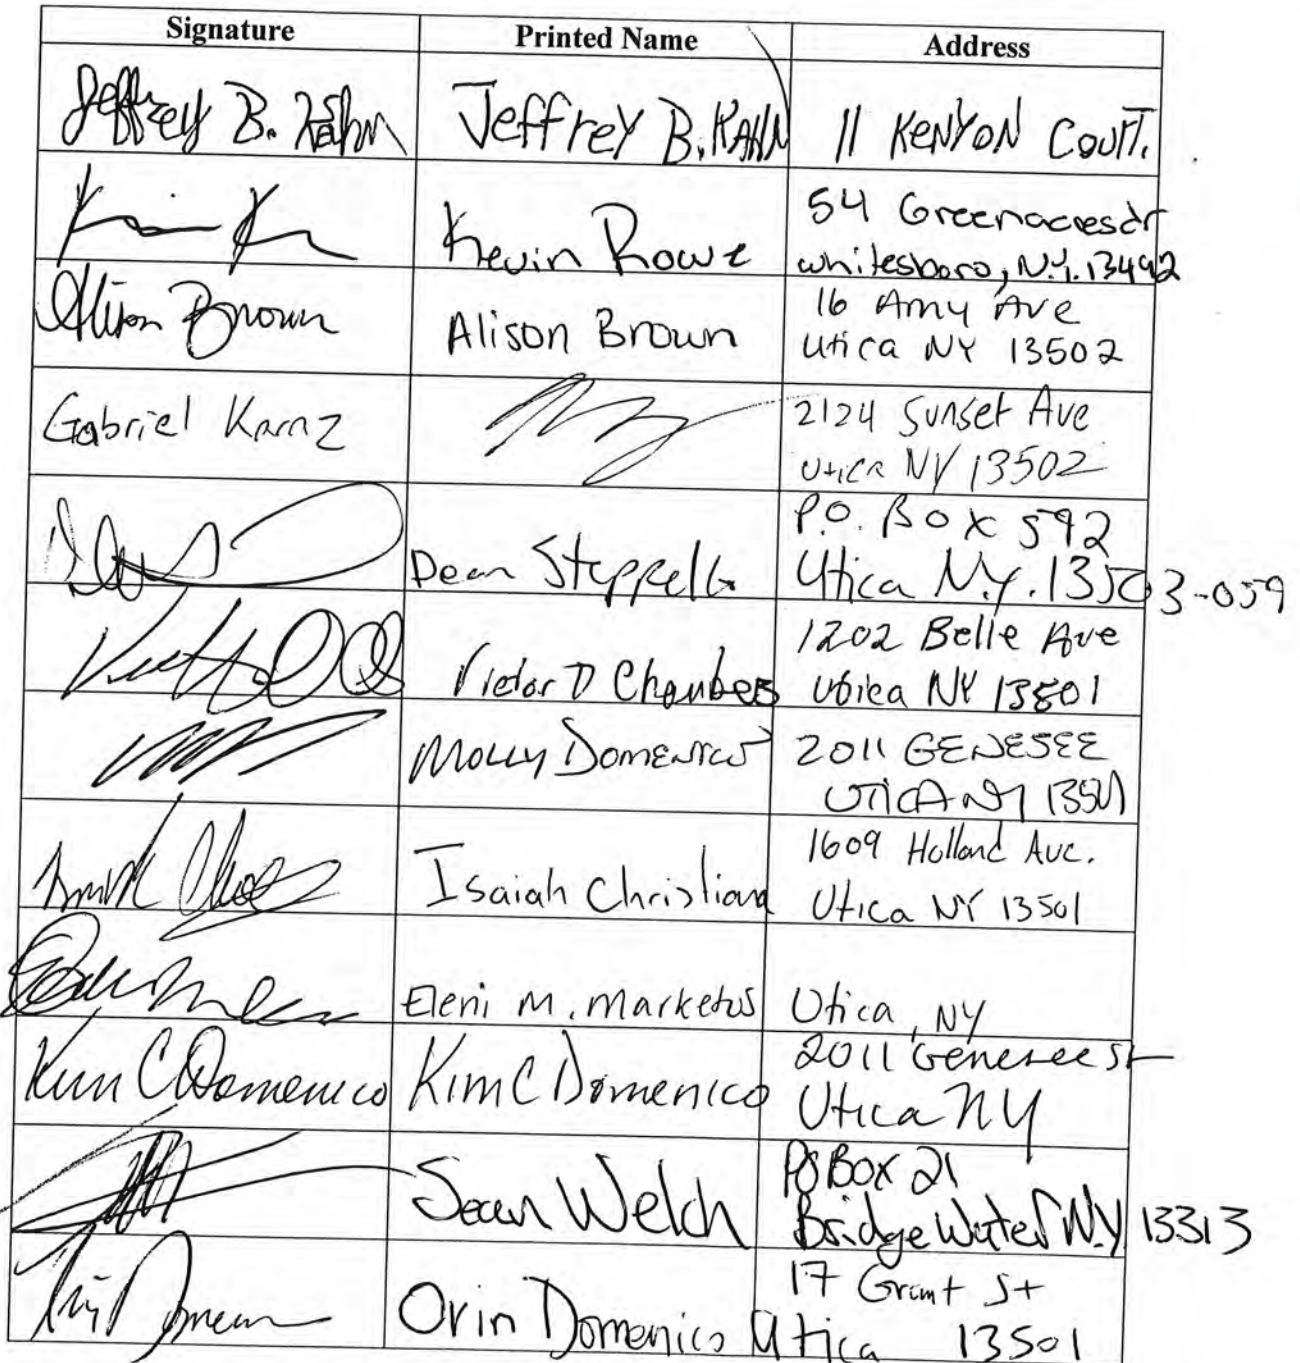 Signature Printed Name Address
Jeffrey B. Kahn Jeffrey B. KAHN 11 KENYON Court.
Kevin Rowe 54 Greenacres dr
Whitesboro, N.Y. 13492
Alison Brown Alison Brown 16 Amy Ave
Utica NY 13502
Gabriel Karaz 2124 Sunset Ave
Utica NY 13502
Dean Steppello P.O. Box 592
Utica N.Y. 13503-059
Victor D Chambers 1202 Belle Ave
Utica NY 13501
Molly Domenico 2011 GENESEE
UTICA NY 13501
Isaiah Christiana 1609 Holland Ave.
Utica NY 13501
Eleni M. Marketos Utica, NY
Kim C Domenico Kim C Domenico 2011 Genesee St
Utica NY
Sean Welch PO Box 21
Bridgewater N.Y 13313
Orin Domenico 17 Grant St
Utica 13501